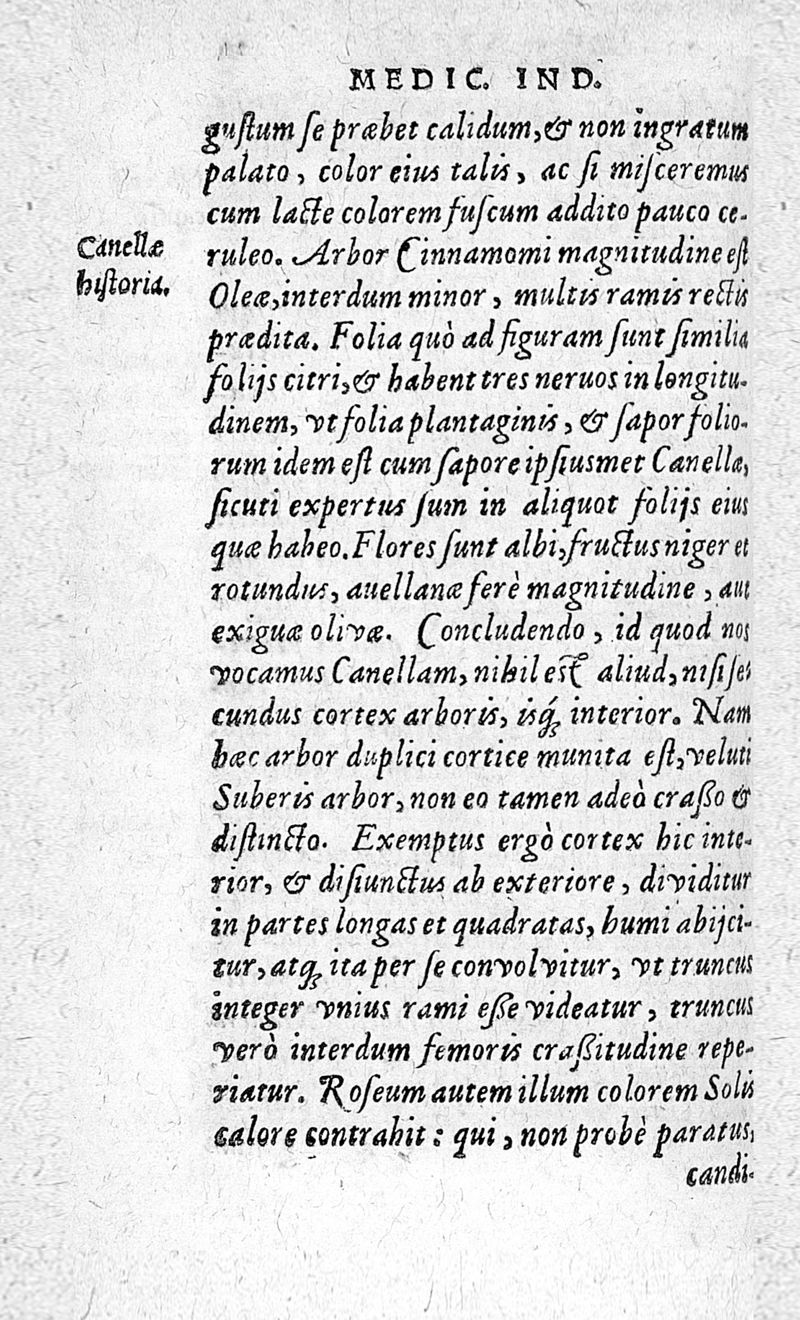 MEDIC. IND.
gustum se præbet calidum, & non ingratum
palato, color eius talis, ac si misceremus
cum lacte colorem fuscum addito pauco ce-
Canellæ
historia.
ruleo. Arbor Cinnamomi magnitudine est
Oleæ, interdum minor, multis ramis rectis
prædita. Folia quò ad figuram sunt similia
folijs citri, & habent tres neruos in longitu-
dinem, vt folia plantaginis, & sapor folio-
rum idem est cum sapore ipsiusmet Canellæ,
sicuti expertus sum in aliquot folijs eius
quæ habeo. Flores sunt albi, fructus niger et
rotundus, auellanæ ferè magnitudine, aut
exiguæ olivæ. Concludendo, id quod nos
vocamus Canellam, nihil est aliud, nisi se-
cundus cortex arboris, isq́; interior. Nam
hæc arbor duplici cortice munita est, veluti
Suberis arbor, non eo tamen adeò crasso &
distincto. Exemptus ergò cortex hic inte-
rior, & disiunctus ab exteriore, dividitur
in partes longas et quadratas, humi abijci-
tur, atq; ita per se convolvitur, vt truncus
integer vnius rami esse videatur, truncus
verò interdum femoris crassitudine repe-
riatur. Roseum autem illum colorem Solis
calore contrahit: qui, non probè paratus,
candi-